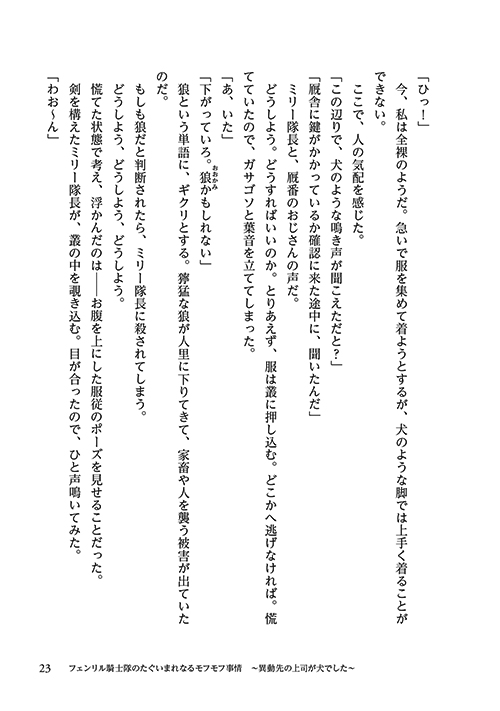 「ひっ！」
　今、私は全裸のようだ。急いで服を集めて着ようとするが、犬のような脚では上手く着ることが
できない。
　ここで、人の気配を感じた。
「この辺りで、犬のような鳴き声が聞こえただと？」
「厩舎に鍵がかかっているか確認に来た途中に、聞いたんだ」
　ミリー隊長と、厩番のおじさんの声だ。
　どうしよう。どうすればいいのか。とりあえず、服は叢に押し込む。どこかへ逃げなければ。慌
てていたので、ガサゴソと葉音を立ててしまった。
「あ、いた」
「下がっていろ。狼かもしれない」
おおかみ
　狼という単語に、ギクリとする。獰猛な狼が人里に下りてきて、家畜や人を襲う被害が出ていた
のだ。
　もしも狼だと判断されたら、ミリー隊長に殺されてしまう。
　どうしよう、どうしよう、どうしよう。
　慌てた状態で考え、浮かんだのは――お腹を上にした服従のポーズを見せることだった。
　剣を構えたミリー隊長が、叢の中を覗き込む。目が合ったので、ひと声鳴いてみた。
「わお～ん」
23　フェンリル騎士隊のたぐいまれなるモフモフ事情　～異動先の上司が犬でした～